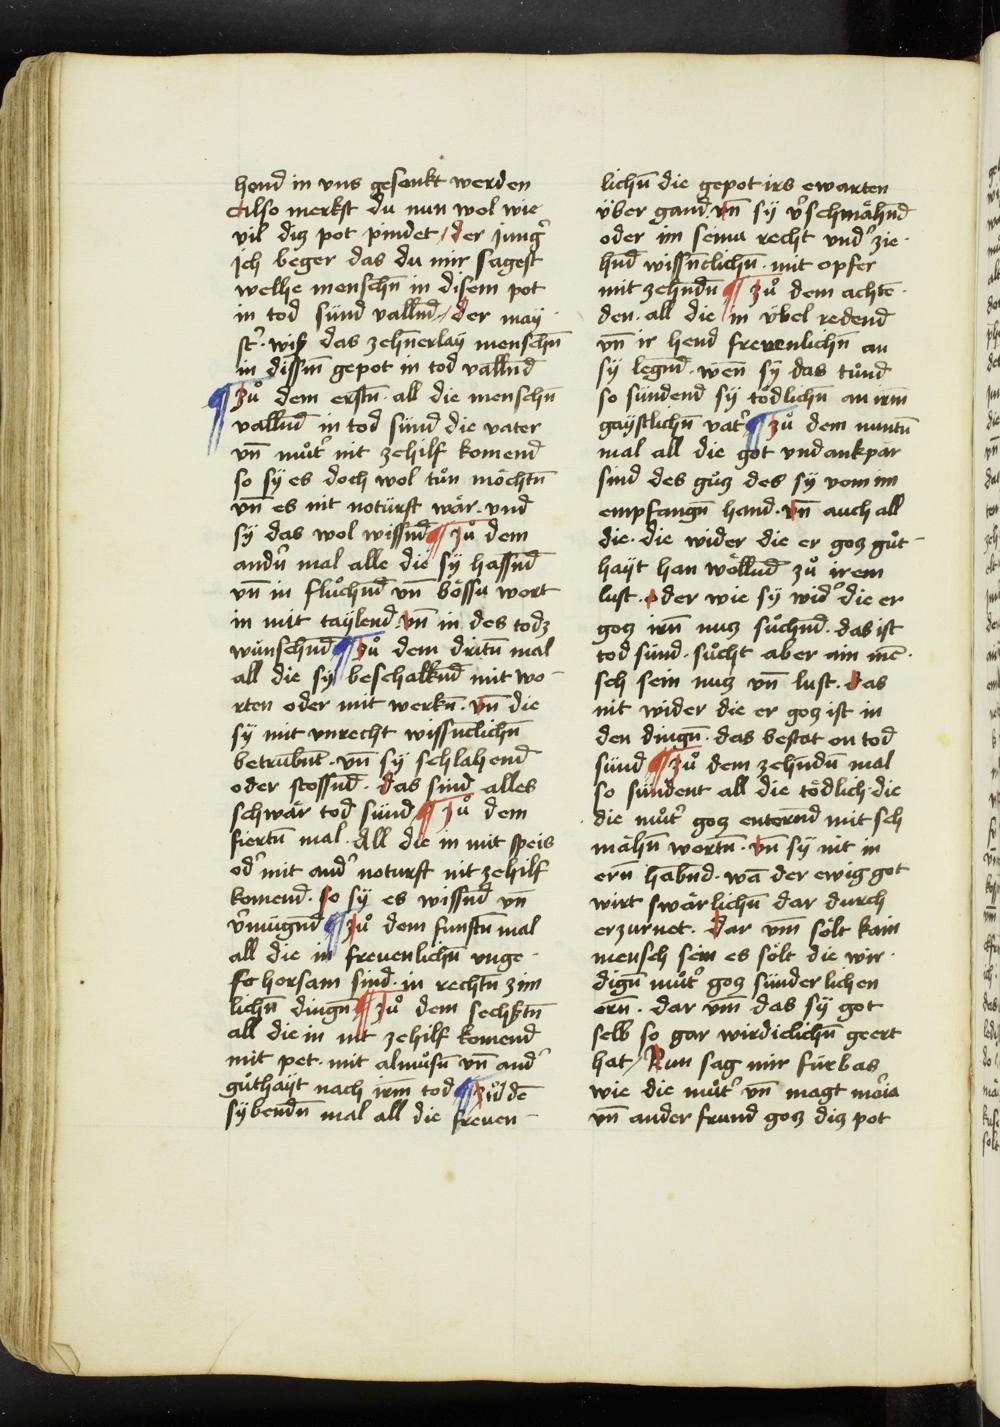 hend in vns gesenkt werden
Also merkst du nun wol wie
vil diz pot pindet / der jungˀ
Ich beger das du mir sagest
welhe menschn̄ in disem pot
in tod sünd vallnd̄ / der may
stˀ · wiß das zehnerlaÿ menschn̄
in dissm̄ gepot in tod vallnd̄
¶ Zuͦ dem erstn̄ · all die menschn̄
vallnd̄ in tod sünd die vater
vn̄ muͦtˀ nit zehilf komend̄
so sy es doch wol tuͦn möchtn̄
vn̄ es nit notürft wär · vnd
sy das wol wissnd̄ ¶ Zuͦ dem
andn̄ mal alle die sy hassnd̄
vn̄ in fluͦchnd̄ vn̄ bössu wort
in mit taÿlend · vn̄ in des todz
wünschnd̄ ¶ Zuͦ dem dritn̄ mal
all die sy beschalknd̄ mit wo-
rten oder mit werkn̄ · vn̄ die
sy mit vnrecht wissn̄clichn̄
betrübnt̄ · vn̄ sy schlahend̄
oder stossnd̄ · das sind alles
schwär tod sünd ¶ Zuͦ dem
fiertn̄ mal · All die in mit speis
odˀ mit andˀ noturft nit zehilf
komend · so sy es wissnd̄ vn̄
vˀmügnd̄ ¶ Zuͦ dem funftn̄ mal
all die in freuenlichn̄ vnge-
horsam sind · in rechtn̄ zim
lichn̄ dingn̄ ¶ Zuͦ dem sechstn̄
all die in nit zehilf komend̄
mit pet · mit almuͦsn̄ vn̄ andˀ
guͦthaÿt nach irm̄ tod ¶ Zuͦ dē
sybendn̄ mal all die freuen-
lichn̄ die gepot irs ewarten
über gand · vn̄ sÿ vˀschmähnd̄
oder im seinu recht vndˀ zie-
hnd̄ wissn̄clichn̄ · mit opfer
mit zehndn̄ ¶ Zuͦ dem achtē-
den · all die in übel redend̄
vn̄ ir hend frevenlichn̄ an
sy legnd̄ · wen̄ sÿ das tuͦnd
so sündend sÿ tödlichn̄ an irm̄
gaÿstlichn̄ vatˀ ¶ Zuͦ dem nuntn̄
mal all die got vndankpär
sind des guͦz des sÿ vom im
empfangn̄ hand · vn̄ auch all
die · die wider die er goz guͦt-
haÿt han wöllnd̄ zuͦ irem
lust · oder wie sÿ widˀ die er
goz irn̄ nuz suͦchnd̄ · das ist
tod sünd · suͦcht aber ain mē-
sch sein nuz vn̄ lust · das
nit wider die er goz ist in
den dingn̄ · das bestat on tod
sünd ¶ Zuͦ dem zehndn̄ mal
so sündent all die tödlich · die
die muͦtˀ goz enternd̄ mit sch
mähn̄ wortn̄ · vn̄ sÿ nit in
ern̄ habnd̄ · wā der ewig got
wirt swärlichn̄ dar durch
erzurnet · Dar vm̄ sölt kain
mensch sein es sölt die wir-
dign̄ muͦtˀ goz sünderlichen
ern̄ · dar vm̄ das sÿ got
selb so gar wirdiclichn̄ geert
hat / Nun sag mir fürbas
wie die muͦtˀ vn̄ magt maria
vn̄ ander frund goz diz pot